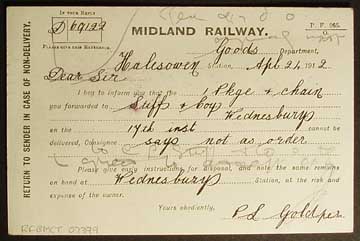 In your Reply
D 69122
Please give this Reference.
P. F. 965.
MIDLAND RAILWAY.
Goods Department,
Halesowen Station, Apl 24 1912
Dear Sir
I beg to inform you that the 1 Pkge & chain
you forwarded to Suff & boy Wednesbury
on the 17th inst cannot be
delivered, Consignee says not as order
Please give early instructions for disposal, and note the same remains
on hand at Wednesbury Station, at the risk and
expense of the owner.
Yours obediently,
RETURN TO SENDER IN CASE OF NON-DELIVERY.